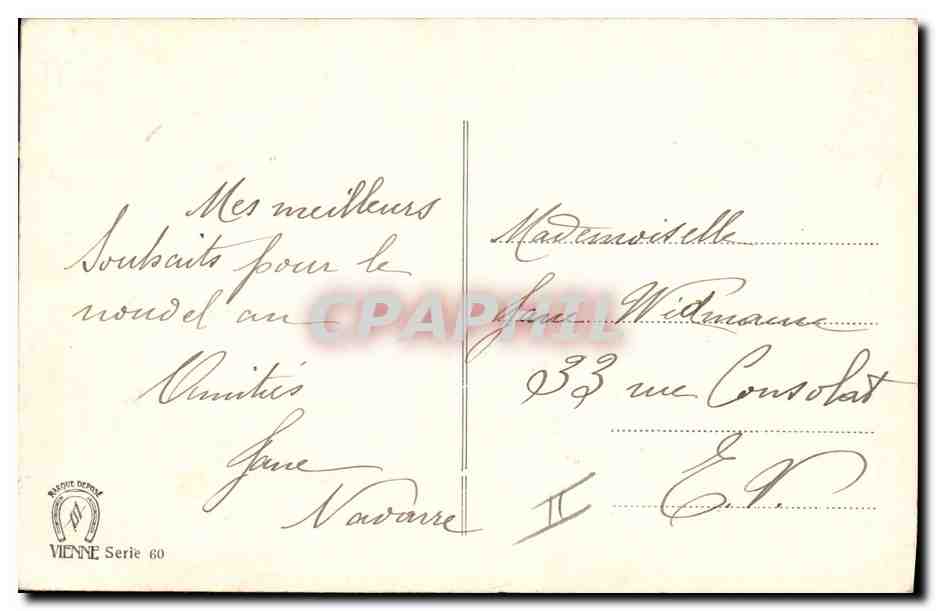 Mes meilleurs
Souhaits pour le
nouvel an
Amitiés
Jane
Navarre
Mademoiselle
Jane Widmann
33 rue Consolat
E.V.
II
MARQUE DEPOSÉ
VIENNE Serie 60
CPAPHIL